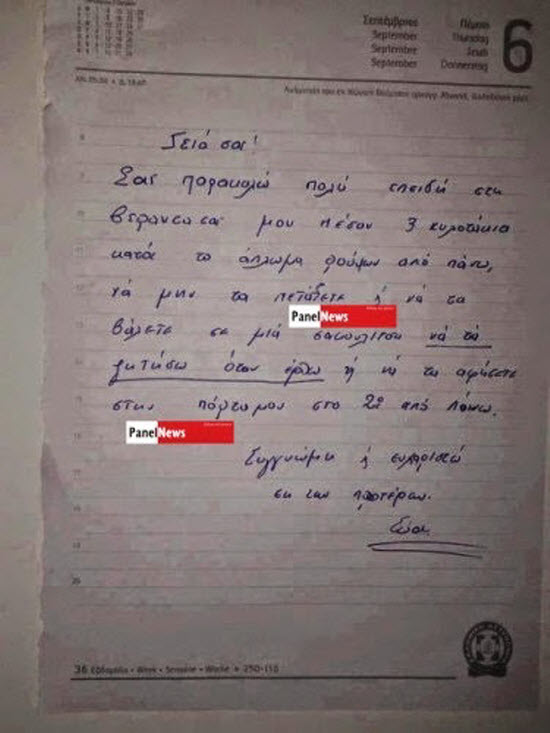 Σεπτέμβριος Πέμπτη
September Thursday
Septembre Jeudi
September Donnerstag
6
Γειά σας!
Σας παρακαλώ πολύ επειδή στη
βεράντα σας μου πέσαν 3 κυλοτάκια
κατά το άπλωμα ρούχων από πάνω,
νά μην τα πετάξετε ή νά τα
PanelNews
βάλετε σε μιά σακουλίτσα νά τά
ζητήσω όταν έρθω ή νά τα αφήσετε
στην πόρτα μου στο 2ο από πάνω.
PanelNews
Συγγνώμη ή ευχαριστώ
εκ των προτέρων.
36 Εβδομάδα • Week • Semaine • Woche • 250-115